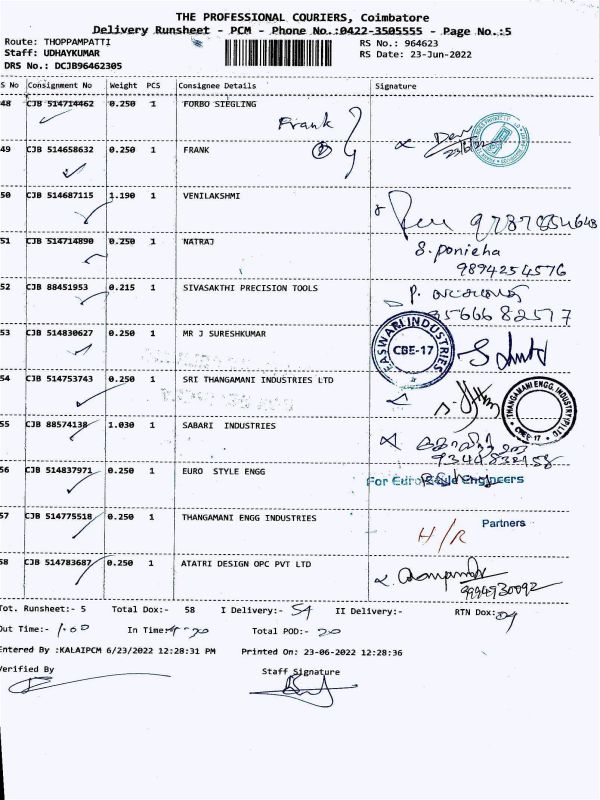 THE PROFESSIONAL COURIERS, Coimbatore
Delivery Runsheet - PCM - Phone No.:0422-3505555 - Page No.:5
Route: THOPPAMPATTI
RS No.: 964623
Staff: UDHAYKUMAR
RS Date: 23-Jun-2022
DRS No.: DCJB96462305
S No Consignment No Weight PCS Consignee Details Signature
48 CJB 514714462 0.250 1 FORBO SIEGLING
Frank
49 CJB 514658632 0.250 1 FRANK
23/6/22
50 CJB 514687115 1.190 1 VENILAKSHMI
9787854648
51 CJB 514714890 0.250 1 NATRAJ
S. ponisha
9894254576
52 CJB 88451953 0.215 1 SIVASAKTHI PRECISION TOOLS
9566682517
53 CJB 514830627 0.250 1 MR J SURESHKUMAR
EASWARI INDUSTRIES
CBE-17
54 CJB 514753743 0.250 1 SRI THANGAMANI INDUSTRIES LTD
THANGAMANI ENGG. INDUSTRY(P)LTD
CBE-17
55 CJB 88574138 1.030 1 SABARI INDUSTRIES
56 CJB 514837971 0.250 1 EURO STYLE ENGG
For Euro Style Engineers
57 CJB 514775518 0.250 1 THANGAMANI ENGG INDUSTRIES
Partners
H/R
58 CJB 514783687 0.250 1 ATATRI DESIGN OPC PVT LTD
9994930092
Tot. Runsheet:- 5 Total Dox:- 58 I Delivery:- 54 II Delivery:- RTN Dox:- 04
Out Time:- 1.00 In Time:- 4-30 Total POD:- 20
Entered By :KALAIPCM 6/23/2022 12:28:31 PM Printed On: 23-06-2022 12:28:36
Verified By
Staff Signature